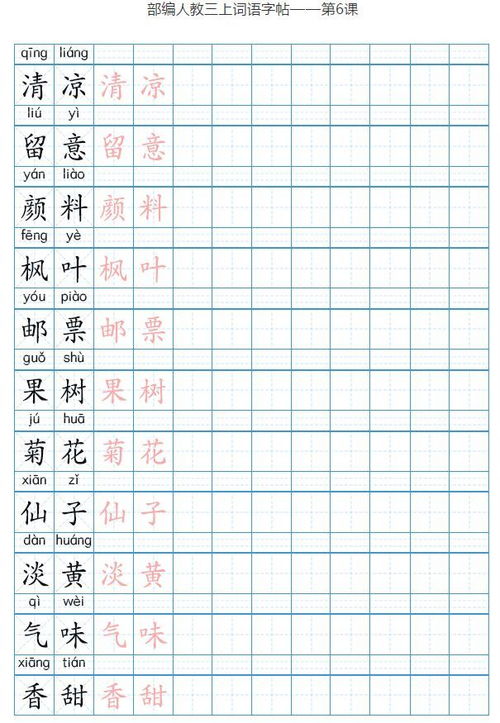 部编人教三上词语字帖——第6课
qīng liáng
清 凉 清 凉
liú yì
留 意 留 意
yán liào
颜 料 颜 料
fēng yè
枫 叶 枫 叶
yóu piào
邮 票 邮 票
guǒ shù
果 树 果 树
jú huā
菊 花 菊 花
xiān zǐ
仙 子 仙 子
dàn huáng
淡 黄 淡 黄
qì wèi
气 味 气 味
xiāng tián
香 甜 香 甜